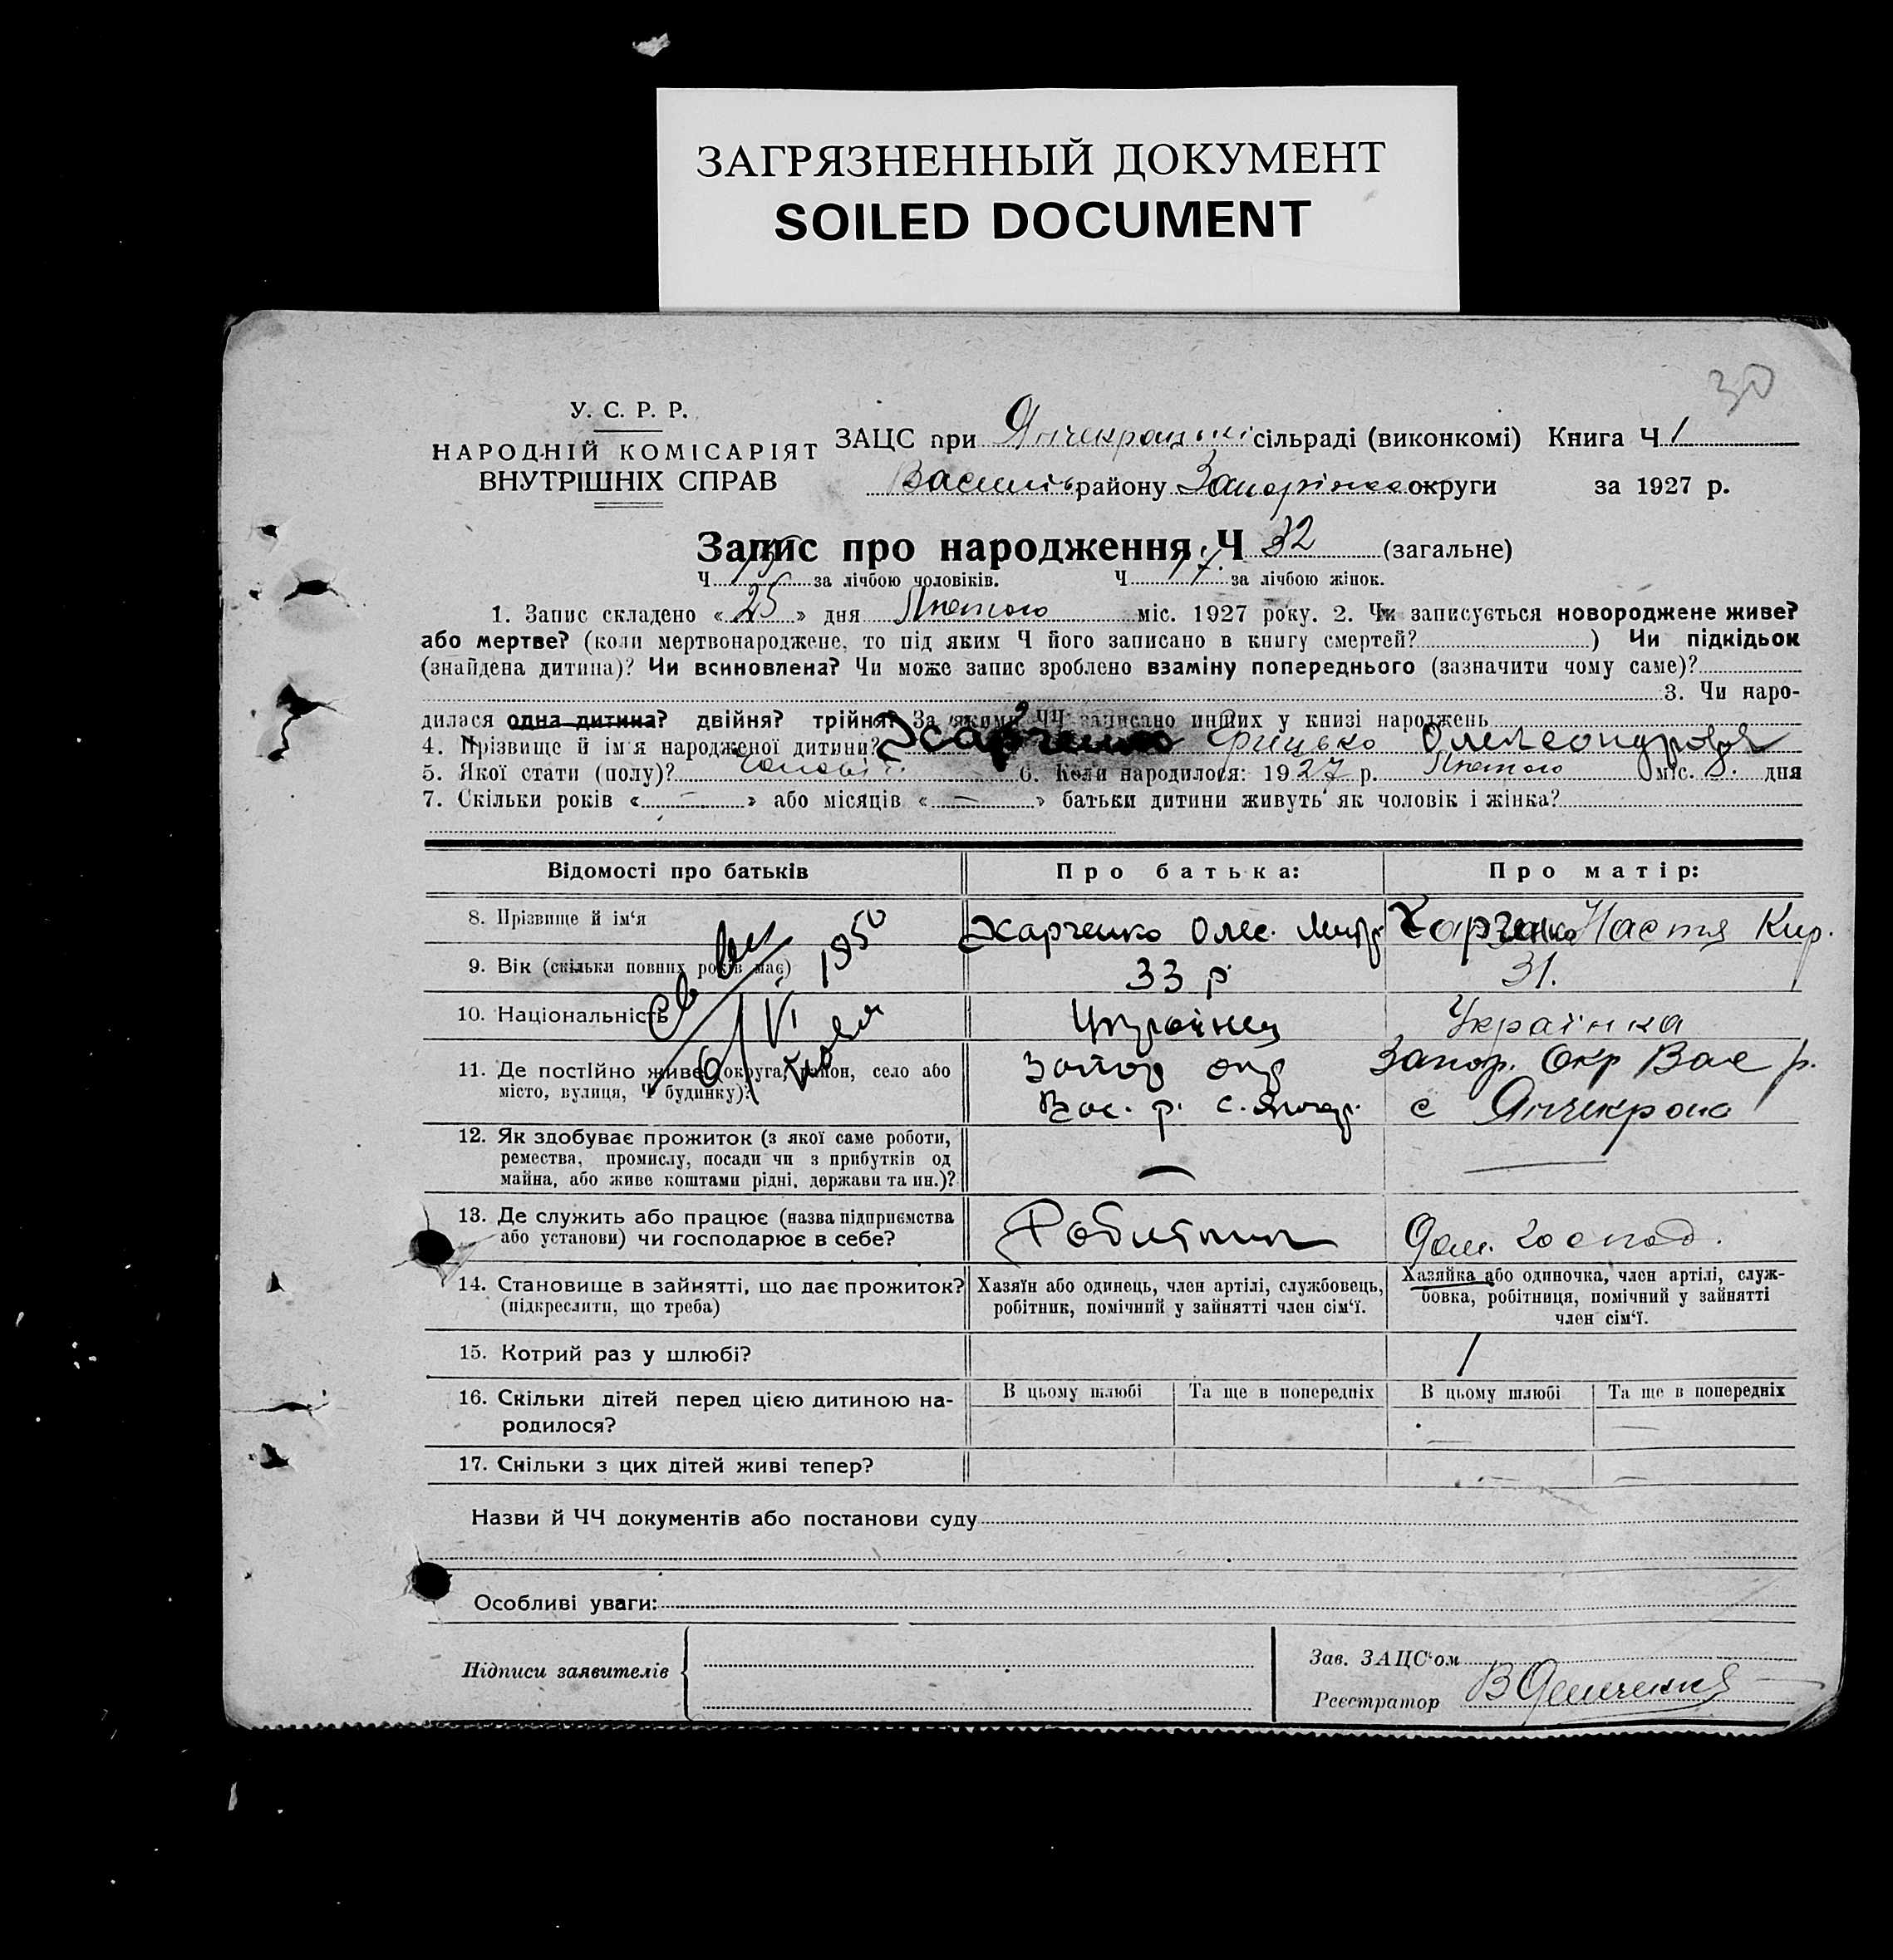 ЗАГРЯЗНЕННЫЙ ДОКУМЕНТ
SOILED DOCUMENT
30
У. С. Р. Р.
НАРОДНІЙ КОМІСАРІЯТ
ВНУТРІШНІХ СПРАВ
ЗАЦС при Янчекрацькі сільраді (виконкомі) Книга Ч 1
Василів району Запорізька округи за 1927 р.
Запис про народження Ч 32 (загальне)
Ч 15 за лічбою чоловіків. Ч 17 за лічбою жінок.
1. Запис складено « 25 » дня Лютого міс. 1927 року. 2. Чи записується новороджене живе?
або мертве? (коли мертвонароджене, то під яким Ч його записано в книгу смертей? ) Чи підкідьок
(знайдена дитина)? Чи всиновлена? Чи може запис зроблено взаміну попереднього (зазначити чому саме)?
3. Чи наро-
дилася одна дитина? двійня? трійня? За якими ЧЧ записано инших у книзі народжень
4. Прізвище й ім'я народженої дитини? Харченко Грицько Олександров
5. Якої стати (полу)? чоловіч 6. Коли народилося: 1927 р. Лютого міс. 8. дня
7. Скільки років « — » або місяців « — » батьки дитини живуть як чоловік і жінка?
Відомості про батьків Про батька: Про матір:
8. Прізвище й ім'я Харченко Олес. Митр. Харченко Настя Кир.
9. Вік (скільки повних років має) 33 р 31.
10. Національність Українец Українка
11. Де постійно живе (округа, район, село або Запор окр Запор. Окр Вас р.
місто, вулиця, Ч будинку)? Вас. р. с. Янчкр. с Янчекрак
6/VI 1950
12. Як здобуває прожиток (з якої саме роботи,
ремества, промислу, посади чи з прибутків од
майна, або живе коштами рідні, держави та ин.)? — —
13. Де служить або працює (назва підприємства
або установи) чи господарює в себе? Робітник Дом. господ.
14. Становище в зайнятті, що дає прожиток?
(підкреслити, що треба)
Хазяїн або одинець, член артілі, службовець,
робітник, помічний у зайнятті член сім'ї.
Хазяйка або одиночка, член артілі, служ-
бовка, робітниця, помічний у зайнятті
член сім'ї.
15. Котрий раз у шлюбі? 1
16. Скільки дітей перед цією дитиною на-
родилося?
В цьому шлюбі Та ще в попередніх В цьому шлюбі Та ще в попередніх
— —
17. Скільки з цих дітей живі тепер? — —
Назви й ЧЧ документів або постанови суду
Особливі уваги:
Підписи заявителів
Зав. ЗАЦС'ом
Реєстратор